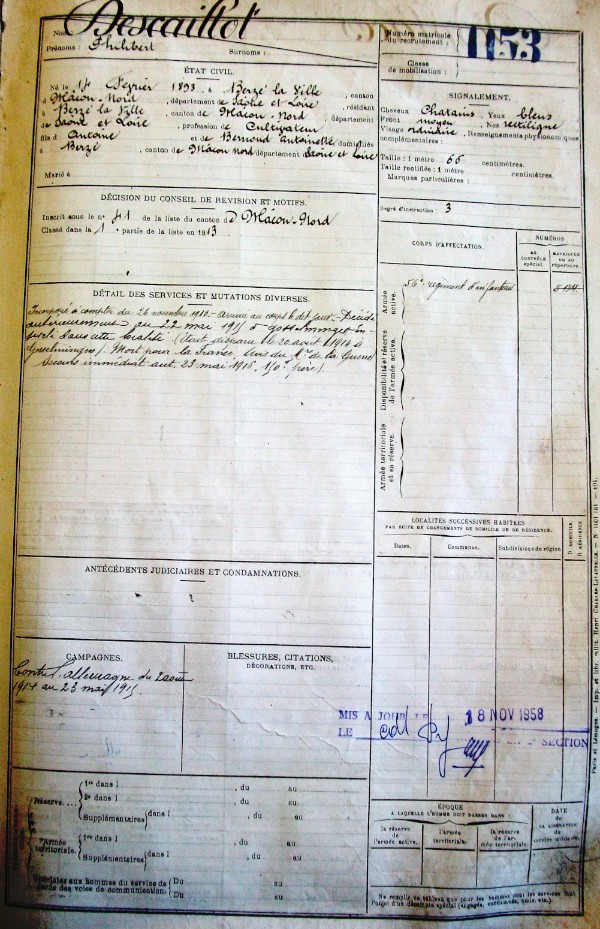 Nom : Descaillot
Prénoms : Philibert Surnoms :
Numéro matricule du recrutement : 1153
Classe de mobilisation :
ÉTAT CIVIL.
Né le 14 Février 1893, à Berzé la Ville, canton
d Mâcon-Nord, département de Saône et Loire, résidant
à Berzé la Ville, canton de Mâcon-Nord, département
de Saône et Loire, profession de Cultivateur
fils d Antoine et de Antoinette, domiciliés
à Berzé, canton de Mâcon Nord département Saône et Loire
Marié à
SIGNALEMENT.
Cheveux Chatains Yeux bleus
Front moyen Nez rectiligne
Visage Renseignements physionomiques
complémentaires :
Taille : 1 mètre 66 centimètres.
Taille rectifiée : 1 mètre centimètres.
Marques particulières :
Degré d'instruction : 3
DÉCISION DU CONSEIL DE REVISION ET MOTIFS.
Inscrit sous le n° 41 de la liste du canton de Mâcon-Nord
Classé dans la 1 e partie de la liste en 1913
DÉTAIL DES SERVICES ET MUTATIONS DIVERSES.
Incorporé à compter du 26 novembre 1913. - Arrivé au corps le dit jour. - Décédé
antérieurement au 22 mai 1915 à
dans cette localité (étant disparu le 20 août 1914 à
Gosselminges). Mort pour la France. Avis du Me de la Guerre
Secours immédiat aut. 23 mai 1916. 150f père).
CORPS D'AFFECTATION.
NUMÉROS
AU CONTRÔLE spécial.
MATRICULE OU AU répertoire.
Armée active.
56e régiment d'infanterie
Disponibilité et réserve de l'armée active.
Armée territoriale et sa réserve.
LOCALITÉS SUCCESSIVES HABITÉES
PAR SUITE DE CHANGEMENTS DE DOMICILE OU DE RÉSIDENCE.
Dates. Communes. Subdivisions de région D DOMICILE R RÉSIDENCE
ANTÉCÉDENTS JUDICIAIRES ET CONDAMNATIONS.
CAMPAGNES.
Contre l'allemagne du 2 août
1914 au 23 mai 1915
BLESSURES, CITATIONS,
DÉCORATIONS, ETC.
MIS A JOUR LE 18 NOV 1958
LE SECTION
Réserve....
1re dans l , du au
2e dans l , du au
Supplémentaires dans l , du au
Armée territoriale.
1re dans l , du au
Supplémentaires dans l , du au
hommes du service de Du au
des voies de communication. Du au
ÉPOQUE
A LAQUELLE L'HOMME DOIT PASSER DANS
la réserve de l'armée active.
l'armée territoriale.
la réserve de l'armée territoriale.
DATE DE LA LIBÉRATION du service militaire.
Ne remplir ce tableau que pour les hommes dont les services font
l'objet d'un décompte spécial (engagés, condamnés, omis, etc.).